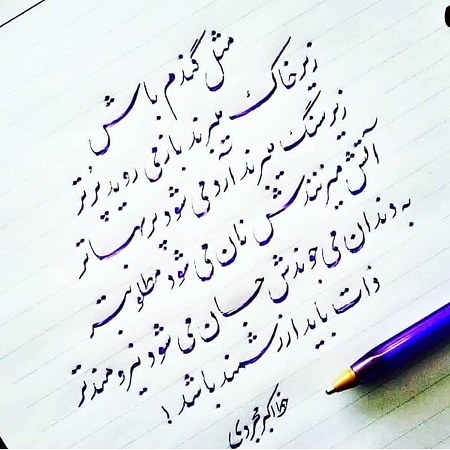 مثل گندم باش
زیر خاک میبرند باز می روید پُرتر
زیر سنگ میبرند آرد می شود پربهاتر
آتش میزنندش نان می شود مطلوبتر
به دندان می جوندش جان می شود نیرومندتر
ذات باید ارزشمند باشد!
خط اکبر